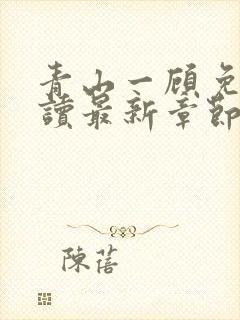 青山一顧免
讀最新章節
陳蓓